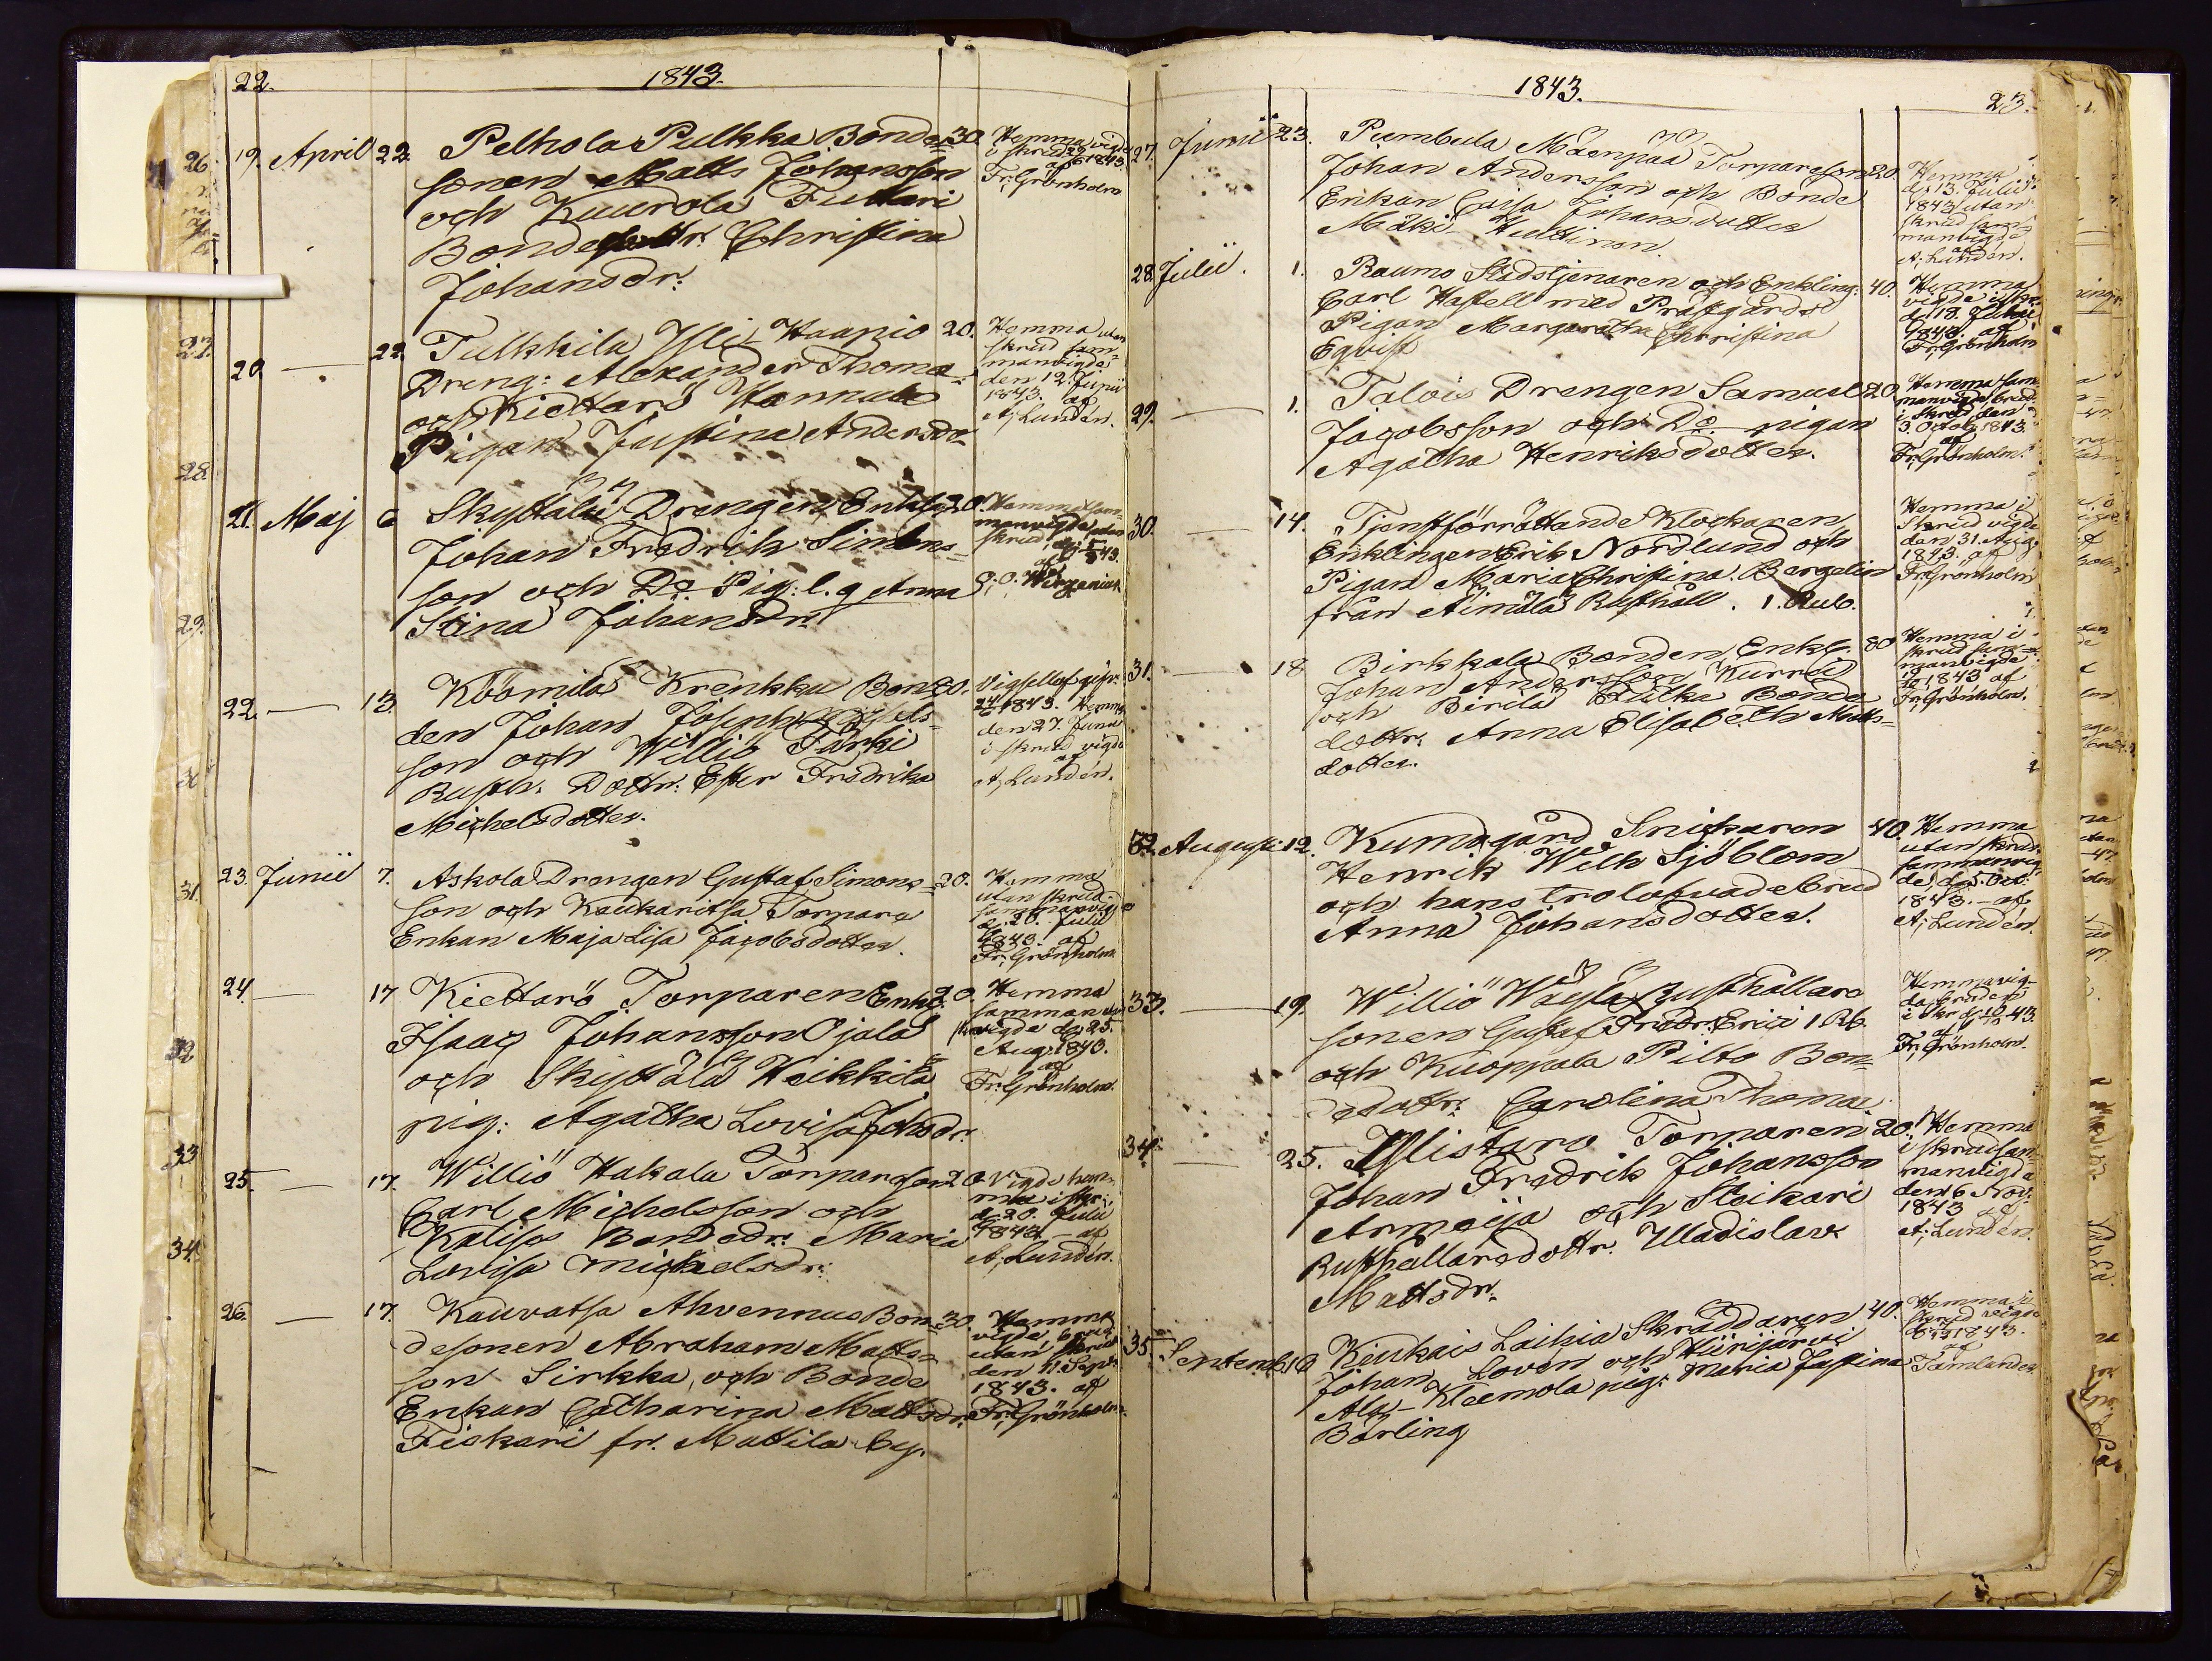 22.
1843.
19. April 22. Pelhola Pulkka Bonde= 30.
sonen Matts Johansson
och Kuurola Tuttari
Bondedottr. Christina
Johansdr.
Hemma vigde
i skrud
af
Fr. Grönholm
20. — 22. Tulkkila Yli-Haapio 20.
Dreng: Alexander Thomæ
och Kiettarö Hannula
Pigan Justina Andersdr
Hemma utan
skrud sam=
manvigde
den 12. Junii
1843. af
A; Lundén.
21. Maj 6 Skyttälä Drengen Enkl. 20.
Johan Fredrik Simons=
son och Do. Pig: l. q Anna
Stina Johansdr.
Hemma sam=
manvigde utan
skrud,
22. — 13. Köömilä Krenkku Bon= 20.
den Johan Josephsson
son och Williö Tarki
Rusth. Dottr. Ester Fredrika
Michelsdotter.
1843. Hemma
den 27. Junii
i skrud vigde
af
A; Lundén.
23. Junii 7. Askola Drengen Gustaf Simons= 20.
son och Kaukaritsa Torpare
Enkan Maja Lisa Jacobsdotter.
Hemma
utan skrud
sammanvigde
d. 20. Julii
1843. af
Fr; Grönholm
24. — 17 Kiettarö Torparen Enkl. 20.
Isaac Johansson Ojala
och Skyttälä Heikkilä
pig: Agatha Lovisa Johsdr.
Hemma
samman
vigde d. 25.
Aug. 1843.
af
Fr: Grönholm.
25. — 17. Williö Hakala Torpareson 20.
Carl Michelsson och
Kalisos Bondedr. Maria
Lovisa Michelsdr.
Vigde hem=
ma i skr:
d. 20. Julii
1843 — af
A; Lundén.
26. — 17. Kauvatsa Ahvennus Bon= 30.
desonen Abraham Matts=
son Sirkka, och Bonde
Enkan Catharina Mattsdr.
Fiskari fr. Mattila by.
Hemma
vigde, brud
utan skrud
den 11. Sept.
1843. af
Fr; Grönholm.
1843.
23.
27. Junii 23. Pumbula Mäenpää Torpareson 20.
Johan Andersson och Bonde
Enkan Caisa Johansdotter
Mäki Huttinen.
Hemma
d. 13. Julii
1843 utan
skrud sam=
manvigde
af
A; Lundén.
28. Julii. 1. Raumo Stadstjenaren och Enkling: 40.
Carl Hastell med Prästgårds
Pigan Margaretha Christina
Eqvist
Hemma
vigde i skr.
d. 18. Julii
1843. af
Fr; Grönholm
29. — 1. Talois Drengen Samuel 20.
Jacobsson och Do. pigan
Agatha Henriksdotter.
Hemma sam=
manvigde, brud
i skrud, den
3. Octob. 1843.
af
Fr; Grönholm.
30. — 14. Tjenstförrättande Klockaren
Enklingen Erik Nordlund och
Pigan Maria Christina Bergelin
från Aimälä Rusthåll. 1. Rub.
Hemma i
Skrud vigde
den 31. Aug.
1843. af
Fr; Grönholm
31. — 18 Birkkala Bonden, Enkl. 80
Johan Andersson Kurrei
och Birilä Tulka Bonde
dottr. Anna Elisabeth Matts=
dotter.
Hemma i
skrud sam=
manvigde
1843 af
Fr; Grönholm.
32. Augusti 12. Kumogård Snickaren 40.
Henrik Wilh Sjöblom
och hans trolofvade brud
Anna Johansdotter.
Hemma
utan skrud
sammanvig=
de, d. 5. Oct.
1843. — af
A; Lundén.
33. — 19. Williö Wäystä Rusthållare
sonen Gustaf Fredr. Erici 1 Rb.
och Kuoppala Pilto Bon=
dedottr: Carolina Thomæ.
Hemma vig=
da, bruden
i skr.
af
Fr; Grönholm.
34. — 25. Ylistaro Torparen 20.
Johan Fredrik Johansson
Armoija och Stoikari
Rusthållaredottr. Uladislava
Mattsdr.
Hemma
i skrud sam=
manvigda
den 6 Nov.
1843 af
A; Lundén.
35. Septemb. 10 Kiukais Laihia Skräddaren 40.
Johan Lovén och Hiirijärvi
Ala-Kleemola pig: Maria Justina
Bärling
Hemma i
skrud vigde
1843.
af
Tamlander.